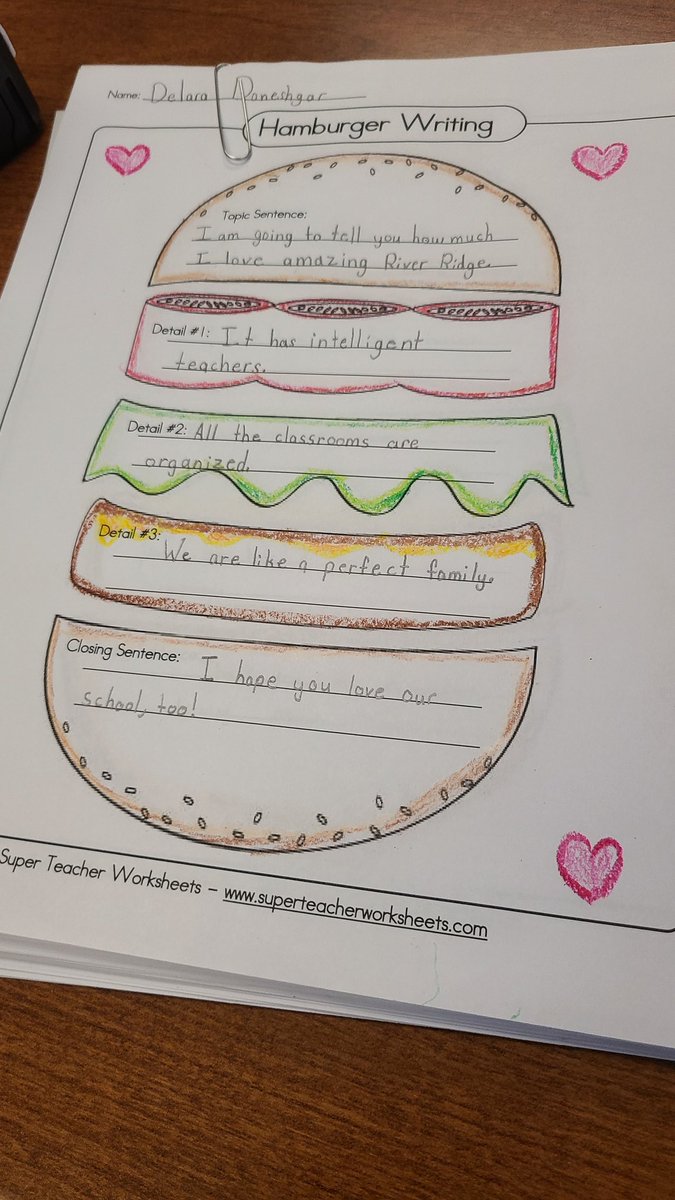 Name: Delara Daneshgar
Hamburger Writing
Topic Sentence:
I am going to tell you how much
I love amazing River Ridge.
Detail #1: It has intelligent
teachers.
Detail #2: All the classrooms are
organized.
Detail #3:
We are like a perfect family.
Closing Sentence: I hope you love our
school, too!
Super Teacher Worksheets - www.superteacherworksheets.com